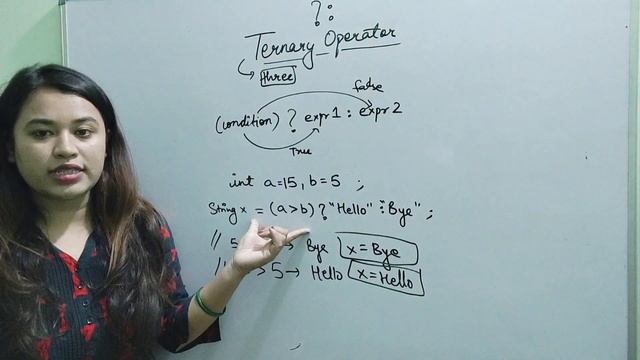 ?:
Ternary Operator
three
false
(condition) ? expr1 : expr2
True
int a=15, b=5 ;
String x = (a>b) ? "Hello" : Bye" ;
// 5 → Bye x = Bye
// > 5 → Hello x = Hello